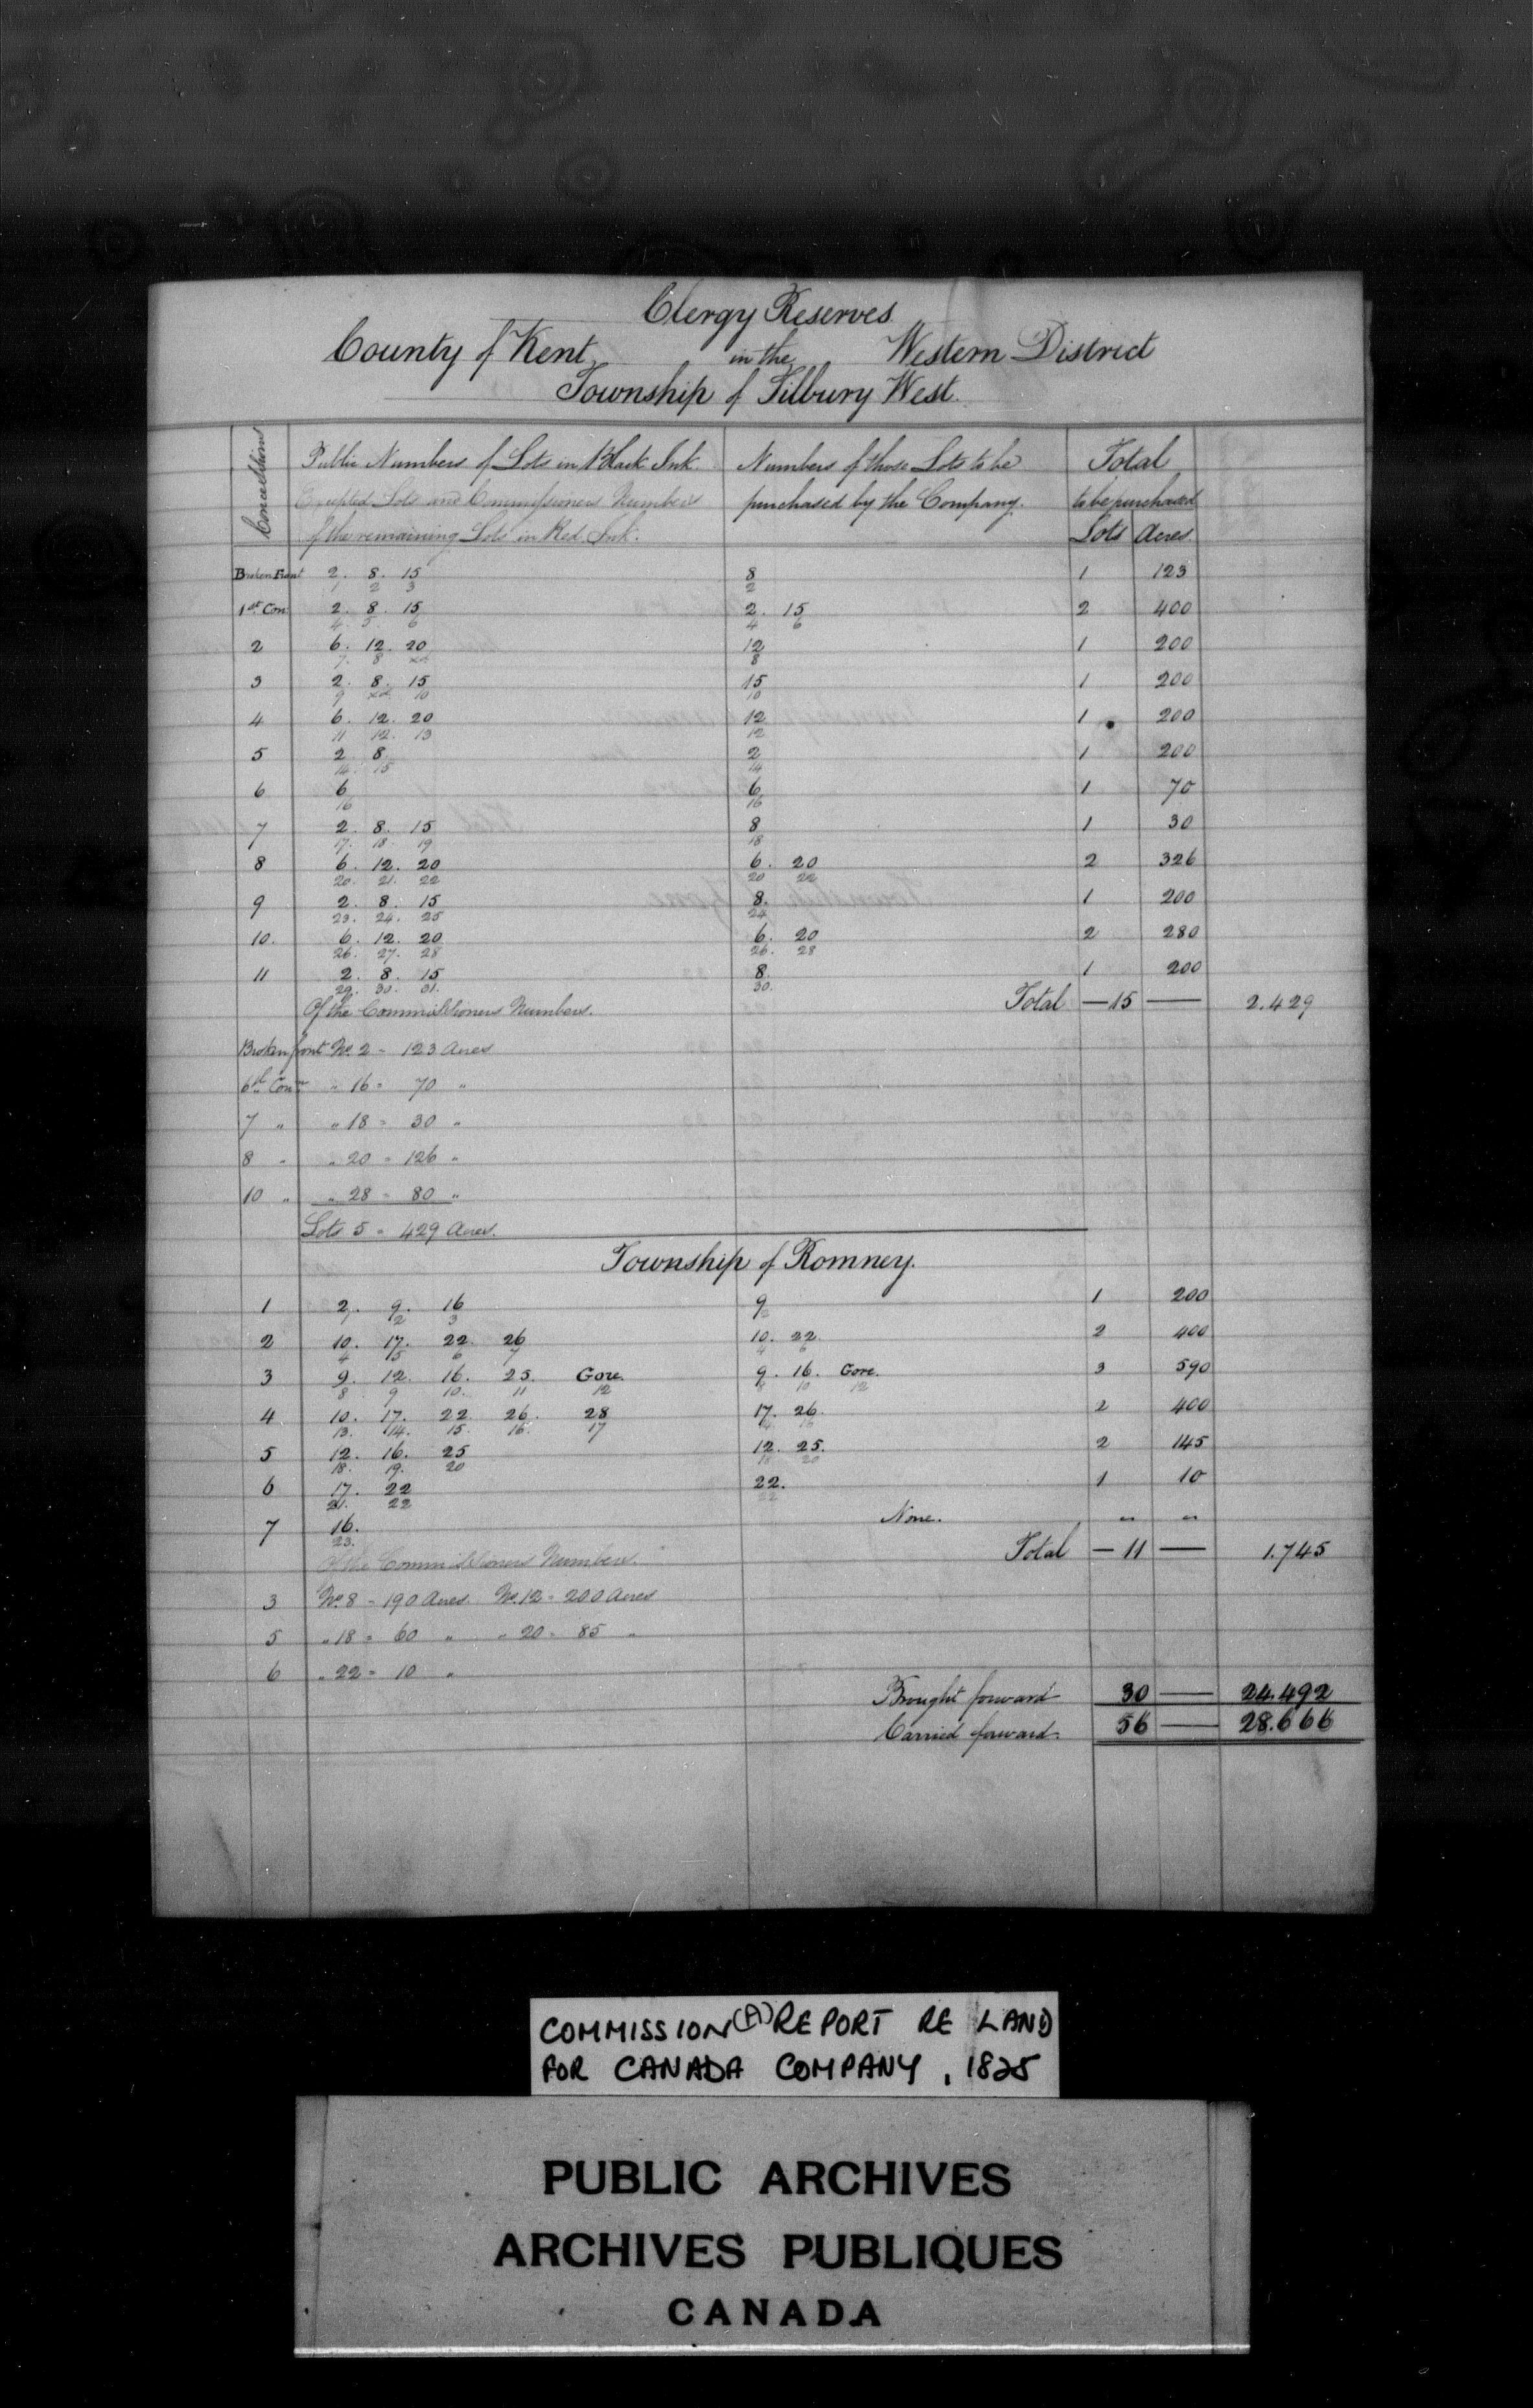 Clergy Reserves
County of Kent in the Western District
Township of Tilbury West.
Concessions
Public Numbers of Lots in Black Ink Numbers of those Lots to be Total
Excepted Lots and Commissioners Numbers purchased by the Company. to be purchased
of the remaining Lots in Red Ink. Lots Acres.
Broken Front 2. 8. 15 8 1 123
1 2 3 2
1st Con. 2. 8. 15 2. 15 2 400
4. 5. 6 4 6
2 6. 12. 20 12 1 200
7. 8 xd 8
3 2. 8. 15 15 1 200
9 xd 10 10
4 6. 12. 20 12 1 200
11 12. 13 12
5 2. 8. 2 1 200
14. 15 14
6 6 6 1 70
16 16
7 2. 8. 15 8 1 30
17. 18. 19 18
8 6. 12. 20 6. 20 2 326
20. 21. 22 20 22
9 2. 8. 15 8. 1 200
23. 24. 25 24
10. 6. 12. 20 6. 20 2 280
26. 27. 28 26. 28
11 2. 8. 15 8. 1 200
29. 30. 31. 30.
Of the Commissioners Numbers. Total — 15 — 2.429
Broken front No. 2 = 123 Acres
6th Con " 16 = 70 "
7 " " 18 = 30 "
8 " " 20 = 126 "
10 " " 28 = 80 "
Lots 5 = 429 Acres.
Township of Romney.
1 2. 9. 16 9 1 200
1 2 3 2
2 10. 17. 22. 26 10. 22. 2 400
4 5 6 7 4 6
3 9. 12. 16. 25. Gore. 9. 16. Gore. 3 590
8 9 10. 11 12 8 10 12
4 10. 17. 22. 26. 28 17. 26. 2 400
13. 14. 15. 16. 17 14 16
5 12. 16. 25 12. 25. 2 145
18. 19. 20 18 20
6 17. 22 22. 1 10
21. 22 22
7 16. None. " "
23.
Of the Commissioners Numbers. Total — 11 — 1.745
3 No. 8 = 190 Acres No. 12 = 200 Acres
5 " 18 = 60 " " 20 = 85 "
6 " 22 = 10 "
Brought forward 30 — 24.492
Carried forward. 56 — 28.666
COMMISSION (A) REPORT RE LAND
FOR CANADA COMPANY, 1825
PUBLIC ARCHIVES
ARCHIVES PUBLIQUES
CANADA